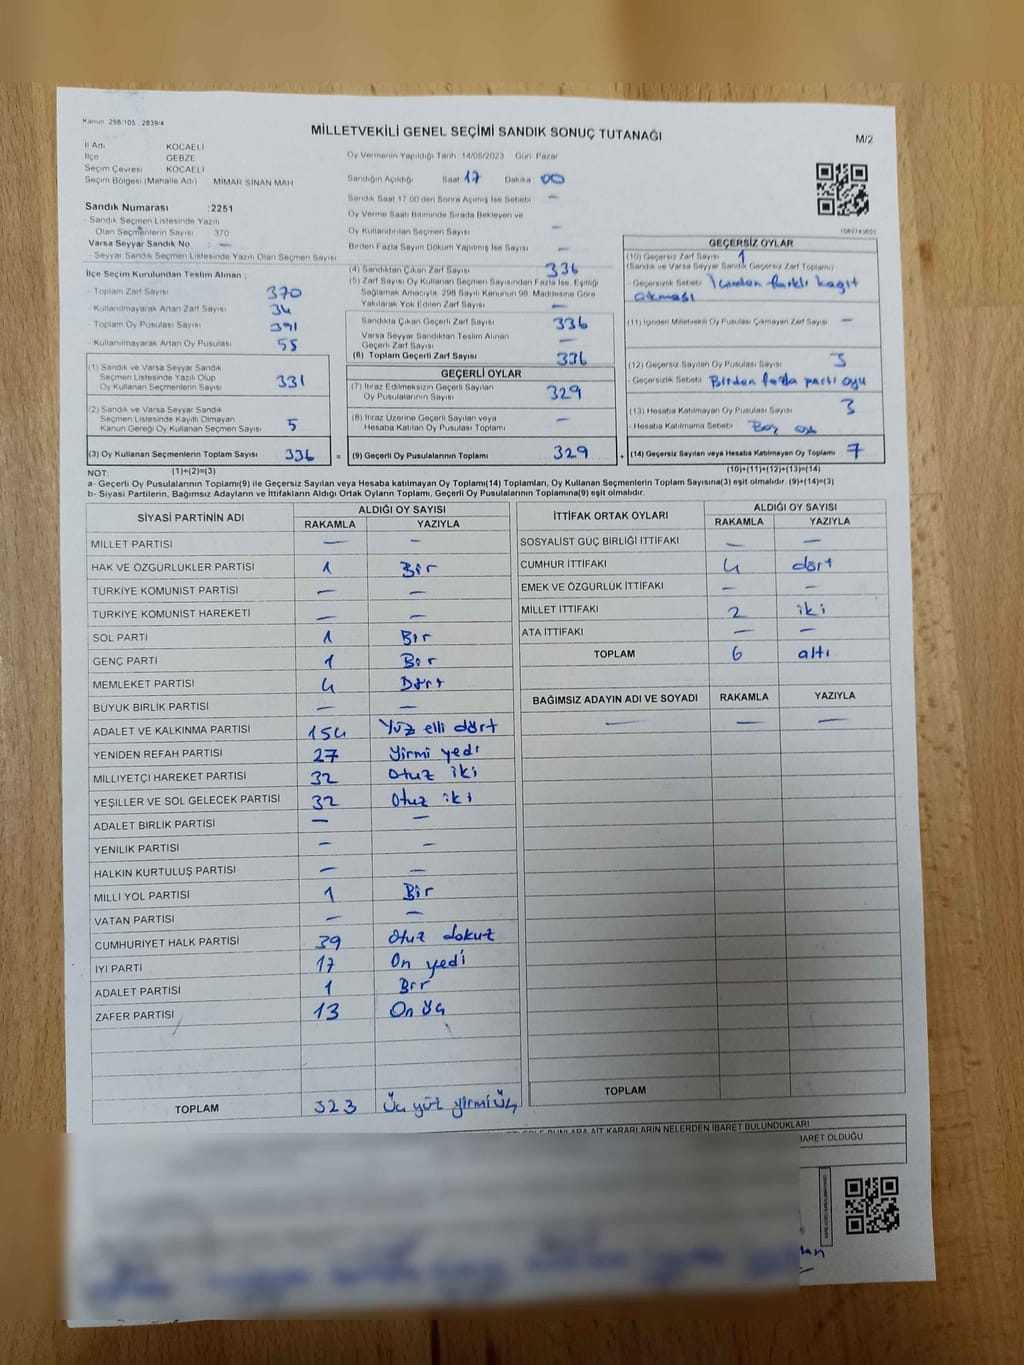 Kanun 298/105 2839/4
MİLLETVEKİLİ GENEL SEÇİMİ SANDIK SONUÇ TUTANAĞI
M/2
İl Adı KOCAELİ
İlçe GEBZE
Seçim Çevresi KOCAELİ
Seçim Bölgesi (Mahalle Adı) MİMAR SİNAN MAH
Oy Vermenin Yapıldığı Tarih 14/05/2023 Gün Pazar
Sandığın Açıldığı Saat 17 Dakika 00
Sandık Saat 17.00'den Sonra Açılmış İse Sebebi —
Oy Verme Saati Bitiminde Sırada Bekleyen ve
Oy Kullandırılan Seçmen Sayısı —
Birden Fazla Sayım Döküm Yapılmış İse Sayısı —
Sandık Numarası :2251
- Sandık Seçmen Listesinde Yazılı
Olan Seçmenlerin Sayısı 370
Varsa Seyyar Sandık No : —
- Seyyar Sandık Seçmen Listesinde Yazılı Olan Seçmen Sayısı
İlçe Seçim Kurulundan Teslim Alınan ;
- Toplam Zarf Sayısı 370
- Kullanılmayarak Artan Zarf Sayısı 34
- Toplam Oy Pusulası Sayısı 391
- Kullanılmayarak Artan Oy Pusulası 55
(1) Sandık ve Varsa Seyyar Sandık
Seçmen Listesinde Yazılı Olup
Oy Kullanan Seçmenlerin Sayısı 331
(2) Sandık ve Varsa Seyyar Sandık
Seçmen Listesinde Kayıtlı Olmayan
Kanun Gereği Oy Kullanan Seçmen Sayısı 5
(3) Oy Kullanan Seçmenlerin Toplam Sayısı 336
(4) Sandıktan Çıkan Zarf Sayısı 336
(5) Zarf Sayısı Oy Kullanan Seçmen Sayısından Fazla İse, Eşitliği
Sağlamak Amacıyla, 298 Sayılı Kanunun 98. Maddesine Göre
Yakılarak Yok Edilen Zarf Sayısı —
Sandıkta Çıkan Geçerli Zarf Sayısı 336
Varsa Seyyar Sandıktan Teslim Alınan
Geçerli Zarf Sayısı —
(6) Toplam Geçerli Zarf Sayısı 336
GEÇERLİ OYLAR
(7) İtiraz Edilmeksizin Geçerli Sayılan
Oy Pusulalarının Sayısı 329
(8) İtiraz Üzerine Geçerli Sayılan veya
Hesaba Katılan Oy Pusulası Toplamı —
= (9) Geçerli Oy Pusulalarının Toplamı 329
GEÇERSİZ OYLAR
(10) Geçersiz Zarf Sayısı 1
(Sandık ve Varsa Seyyar Sandık Geçersiz Zarf Toplamı)
- Geçersizlik Sebebi İçinden farklı kağıt
çıkması
(11) İçinden Milletvekili Oy Pusulası Çıkmayan Zarf Sayısı —
(12) Geçersiz Sayılan Oy Pusulası Sayısı 3
- Geçersizlik Sebebi Birden fazla parti oyu
(13) Hesaba Katılmayan Oy Pusulası Sayısı 3
- Hesaba Katılmama Sebebi Boş oy
+ (14) Geçersiz Sayılan veya Hesaba Katılmayan Oy Toplamı 7
NOT: (1)+(2)=(3) (10)+(11)+(12)+(13)=(14)
a- Geçerli Oy Pusulalarının Toplamı(9) ile Geçersiz Sayılan veya Hesaba katılmayan Oy Toplamı(14) Toplamları, Oy Kullanan Seçmenlerin Toplam Sayısına(3) eşit olmalıdır. (9)+(14)=(3)
b- Siyasi Partilerin, Bağımsız Adayların ve İttifakların Aldığı Ortak Oyların Toplamı, Geçerli Oy Pusulalarının Toplamına(9) eşit olmalıdır.
SİYASİ PARTİNİN ADI ALDIĞI OY SAYISI
RAKAMLA YAZIYLA
MİLLET PARTİSİ — —
HAK VE ÖZGÜRLÜKLER PARTİSİ 1 Bir
TÜRKİYE KOMÜNİST PARTİSİ — —
TÜRKİYE KOMÜNİST HAREKETİ — —
SOL PARTİ 1 Bir
GENÇ PARTİ 1 Bir
MEMLEKET PARTİSİ 4 Dört
BÜYÜK BİRLİK PARTİSİ — —
ADALET VE KALKINMA PARTİSİ 154 Yüz elli dört
YENİDEN REFAH PARTİSİ 27 Yirmi yedi
MİLLİYETÇİ HAREKET PARTİSİ 32 Otuz iki
YEŞİLLER VE SOL GELECEK PARTİSİ 32 Otuz iki
ADALET BİRLİK PARTİSİ — —
YENİLİK PARTİSİ — —
HALKIN KURTULUŞ PARTİSİ — —
MİLLİ YOL PARTİSİ 1 Bir
VATAN PARTİSİ — —
CUMHURİYET HALK PARTİSİ 39 Otuz dokuz
İYİ PARTİ 17 On yedi
ADALET PARTİSİ 1 Bir
ZAFER PARTİSİ 13 On üç
TOPLAM 323 Üç yüz yirmi üç
İTTİFAK ORTAK OYLARI ALDIĞI OY SAYISI
RAKAMLA YAZIYLA
SOSYALİST GÜÇ BİRLİĞİ İTTİFAKI — —
CUMHUR İTTİFAKI 4 dört
EMEK VE ÖZGÜRLÜK İTTİFAKI — —
MİLLET İTTİFAKI 2 iki
ATA İTTİFAKI — —
TOPLAM 6 altı
BAĞIMSIZ ADAYIN ADI VE SOYADI RAKAMLA YAZIYLA
— — —
TOPLAM
BUNLARA AİT KARARLARIN NELERDEN İBARET BULUNDUKLARI
OLDUĞU